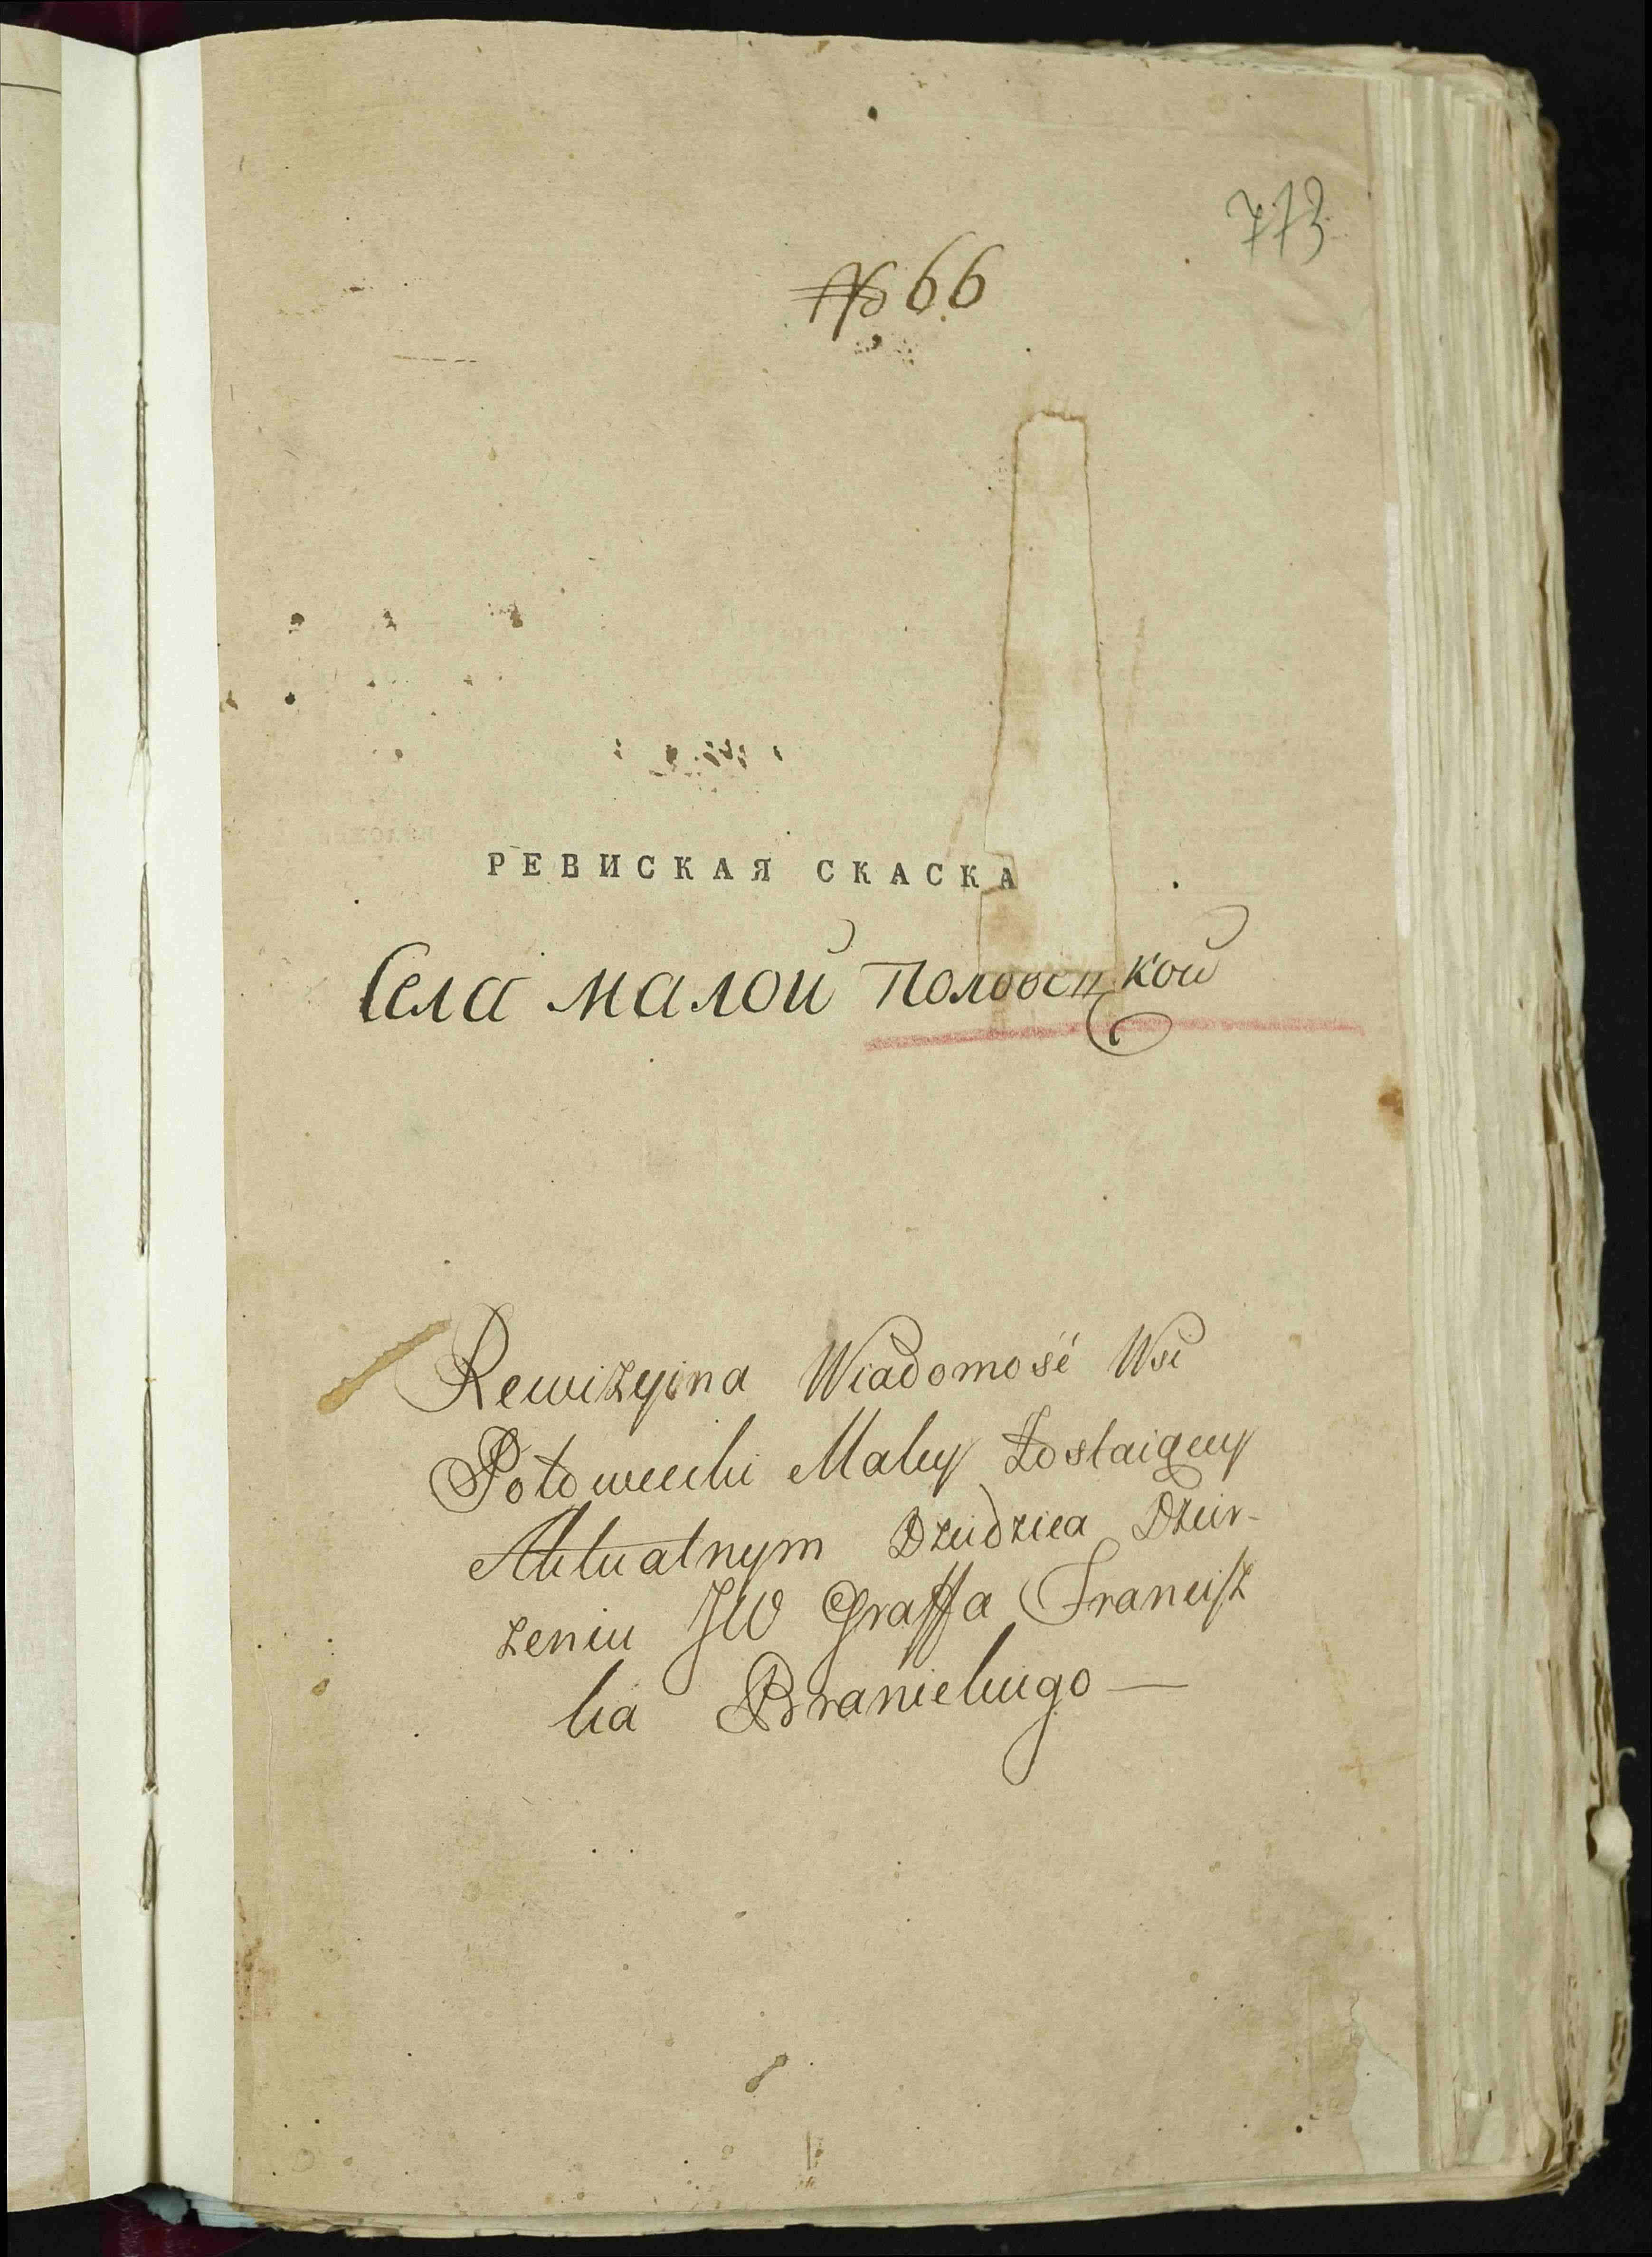 773
№ 66
РЕВИСКАЯ СКАСКА
Села малой Половецкой
Rewizyina Wiadomość Wsi
Połowecki Małey Zostaiącey
Aktualnym Dziedzica Dzier-
zeniu JW Graffa Francisz
ka Branickiego —